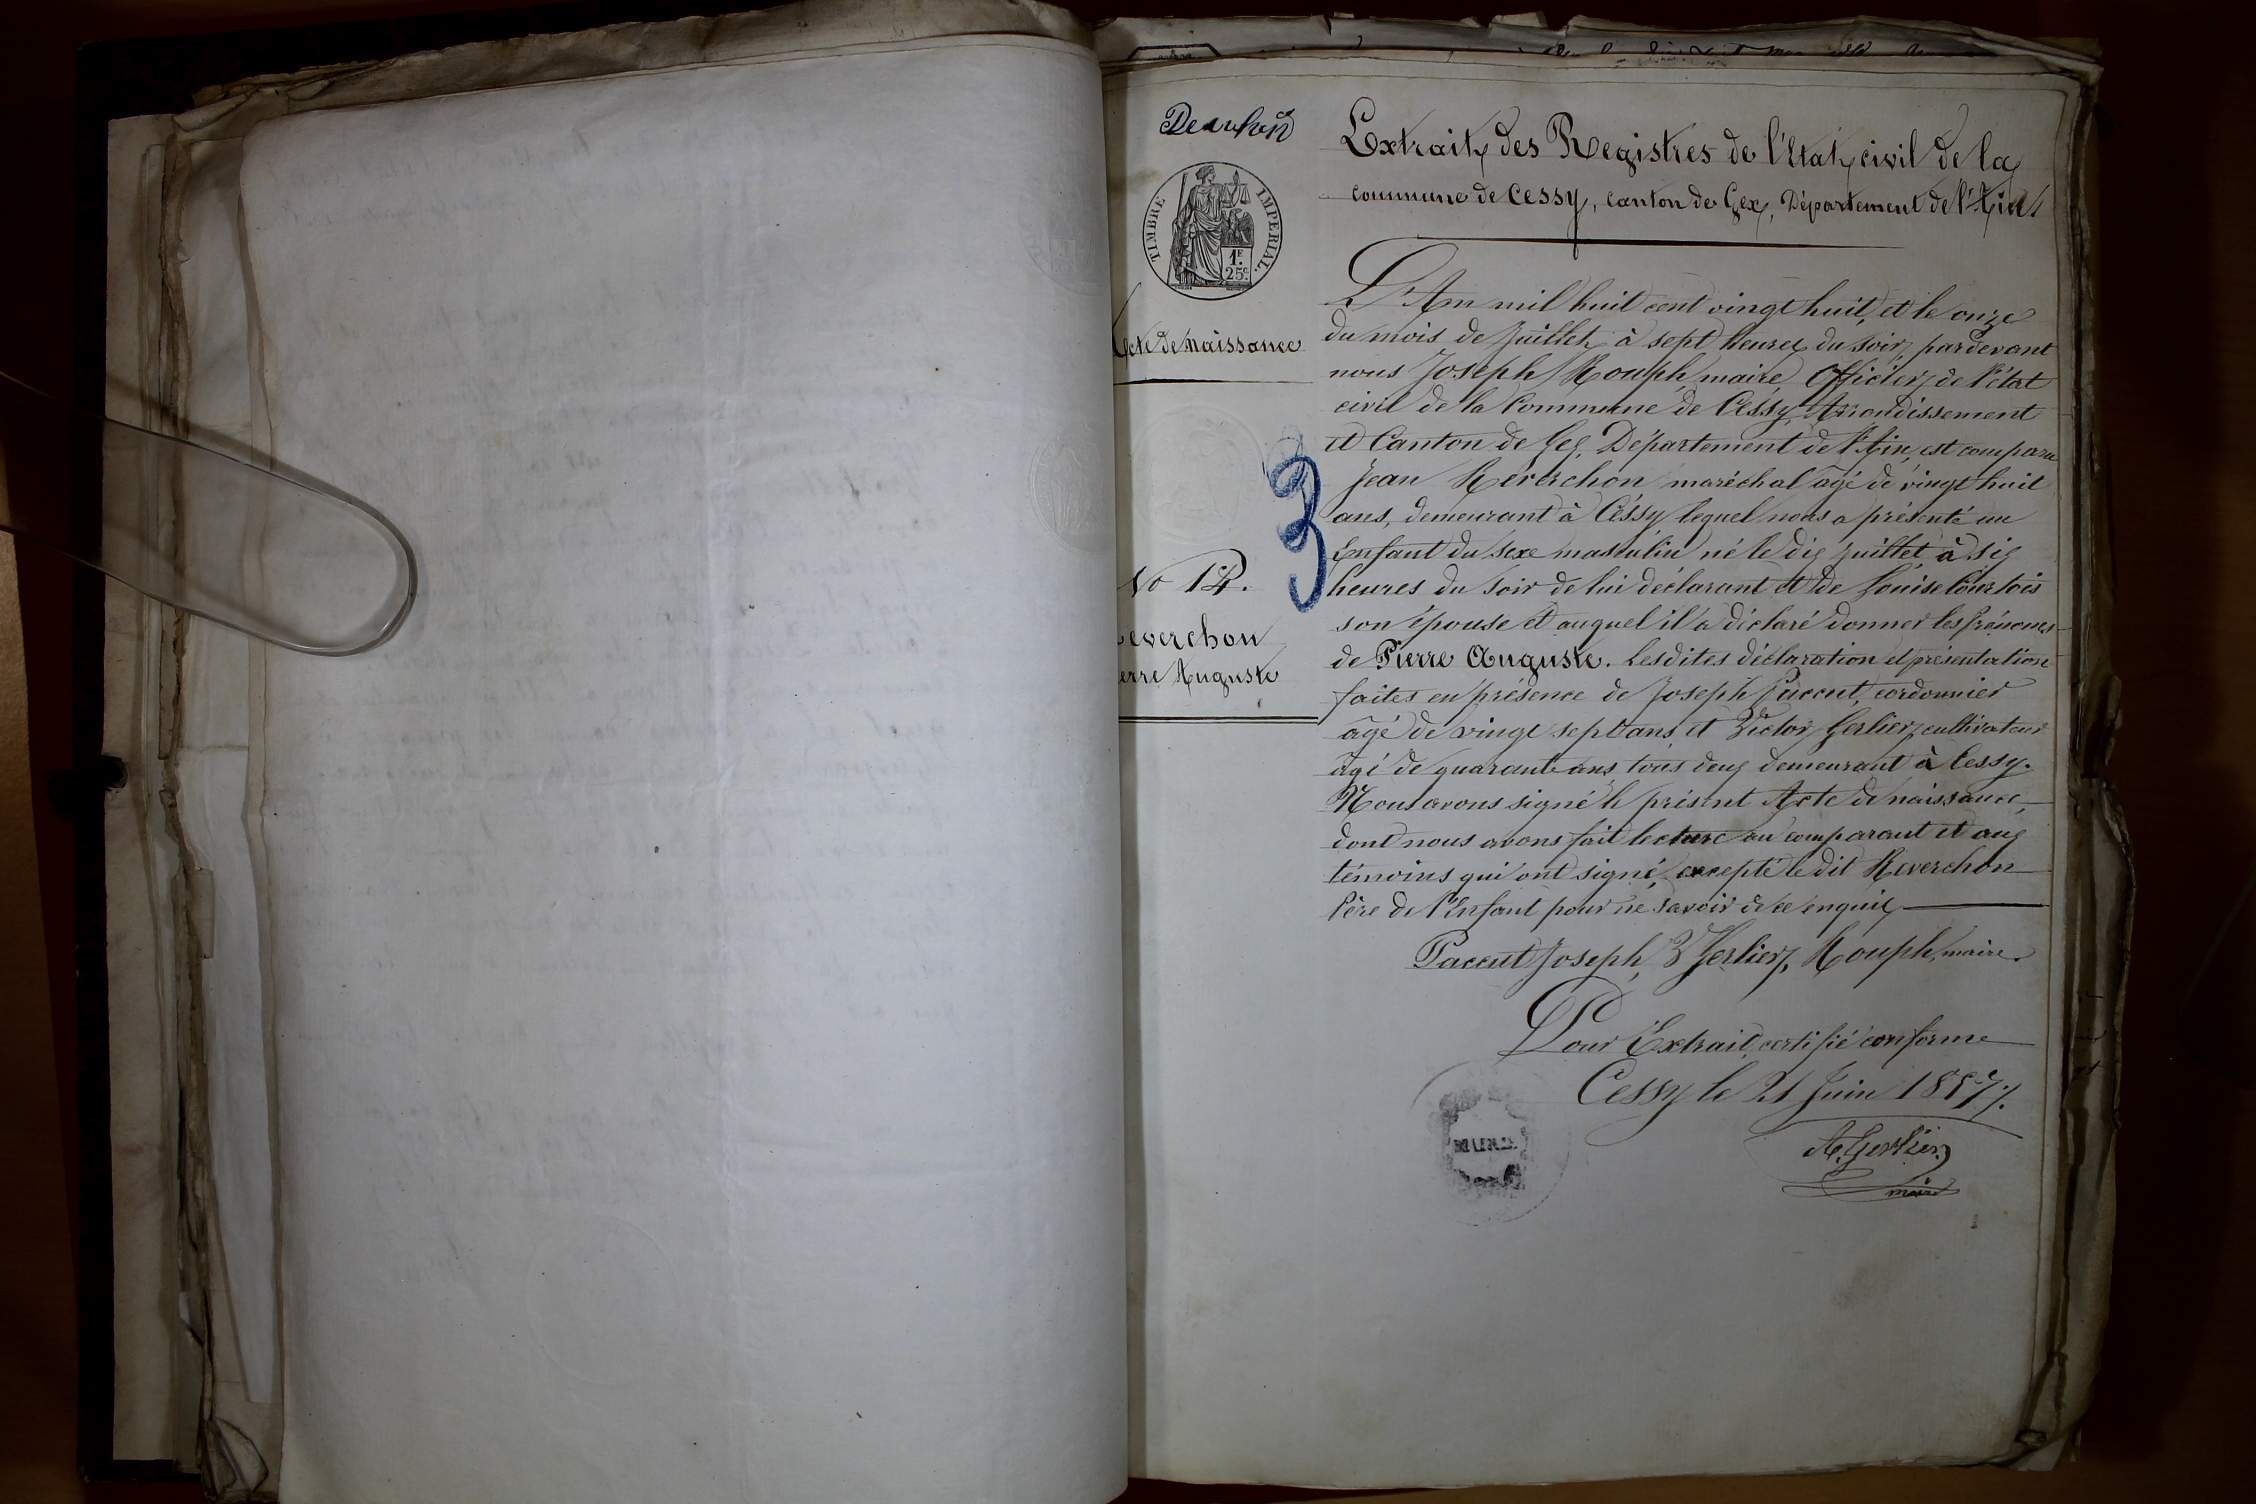 Extrait des Registres de l'État civil de la
commune de Cessy, canton de Gex, Département de l'Ain
TIMBRE IMPERIAL.
1F.
25c.
Acte de naissance
L'An mil huit cent vingt huit, et le onze
du mois de Juillet, à sept heures du soir, pardevant
nous Joseph Rouph maire, Officier de l'état
civil de la Commune de Cessy, Arrondissement
et Canton de Gex, Département de l'Ain, est comparu
Jean Reverchon maréchal âgé de vingt huit
ans, demeurant à Cessy lequel nous a présenté un
Enfant du sexe masculin né le dix juillet à six
heures du soir de lui déclarant et de Louise Courtois
son épouse et auquel il a déclaré donner les prénoms
de Pierre Auguste. Lesdites déclaration et présentation
faites en présence de Joseph Paccut, cordonnier
âgé de vingt sept ans, et Victor Gerlier, cultivateur
âgé de quarante ans, tous deux demeurant à Cessy.
Nous avons signé le présent Acte de naissance,
dont nous avons fait lecture au comparant et aux
témoins qui ont signé, excepté le dit Reverchon
Père de l'Enfant pour ne savoir de ce enquis
No 12.
everchon
erre Auguste
3
Paccut Joseph, V Gerlier, Rouph, maire.
Pour Extrait, certifié conforme
Cessy le 21 Juin 1857.
A. Gerlier
maire